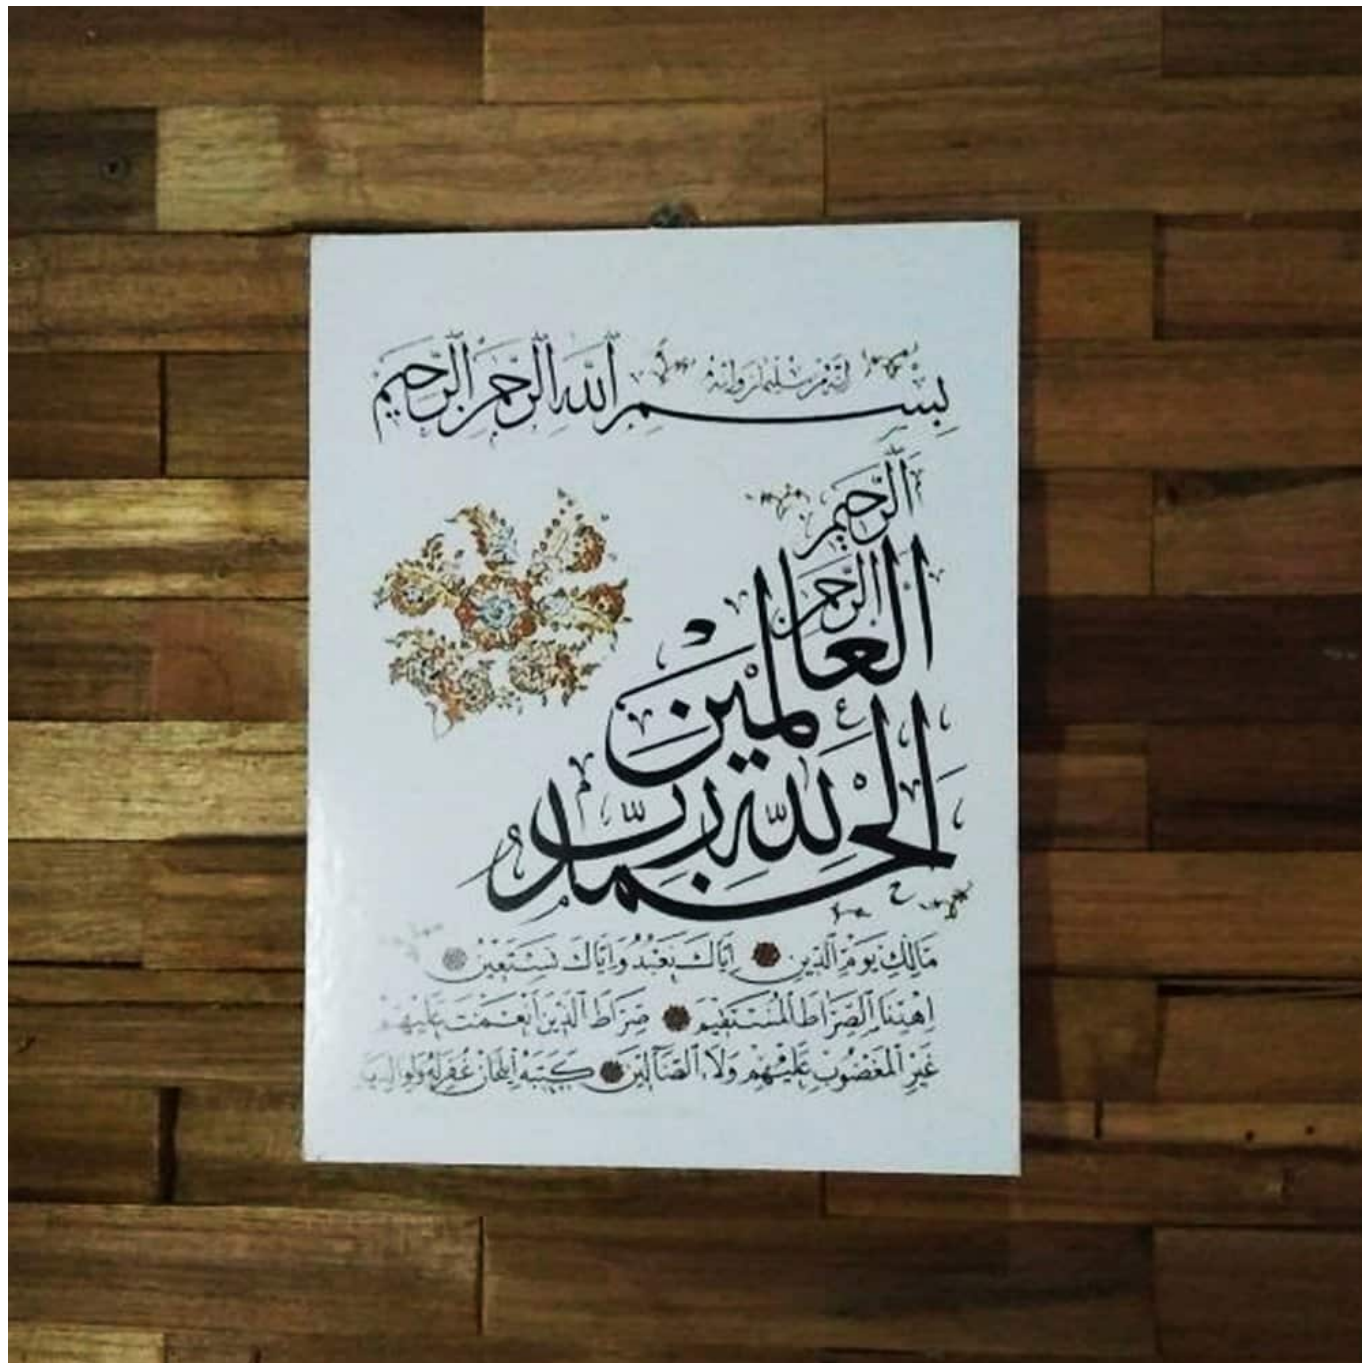 بِسْمِ اللَّهِ الرَّحْمَٰنِ الرَّحِيمِ
إِنَّهُ مِنْ سُلَيْمَانَ وَإِنَّهُ
الْحَمْدُ لِلَّهِ رَبِّ
الْعَالَمِينَ
الرَّحْمَٰنِ
الرَّحِيمِ
مَالِكِ يَوْمِ الدِّينِ إِيَّاكَ نَعْبُدُ وَإِيَّاكَ نَسْتَعِينُ
اهْدِنَا الصِّرَاطَ الْمُسْتَقِيمَ صِرَاطَ الَّذِينَ أَنْعَمْتَ عَلَيْهِمْ
غَيْرِ الْمَغْضُوبِ عَلَيْهِمْ وَلَا الضَّالِّينَ كَتَبَهُ غُفِرَ لَهُ